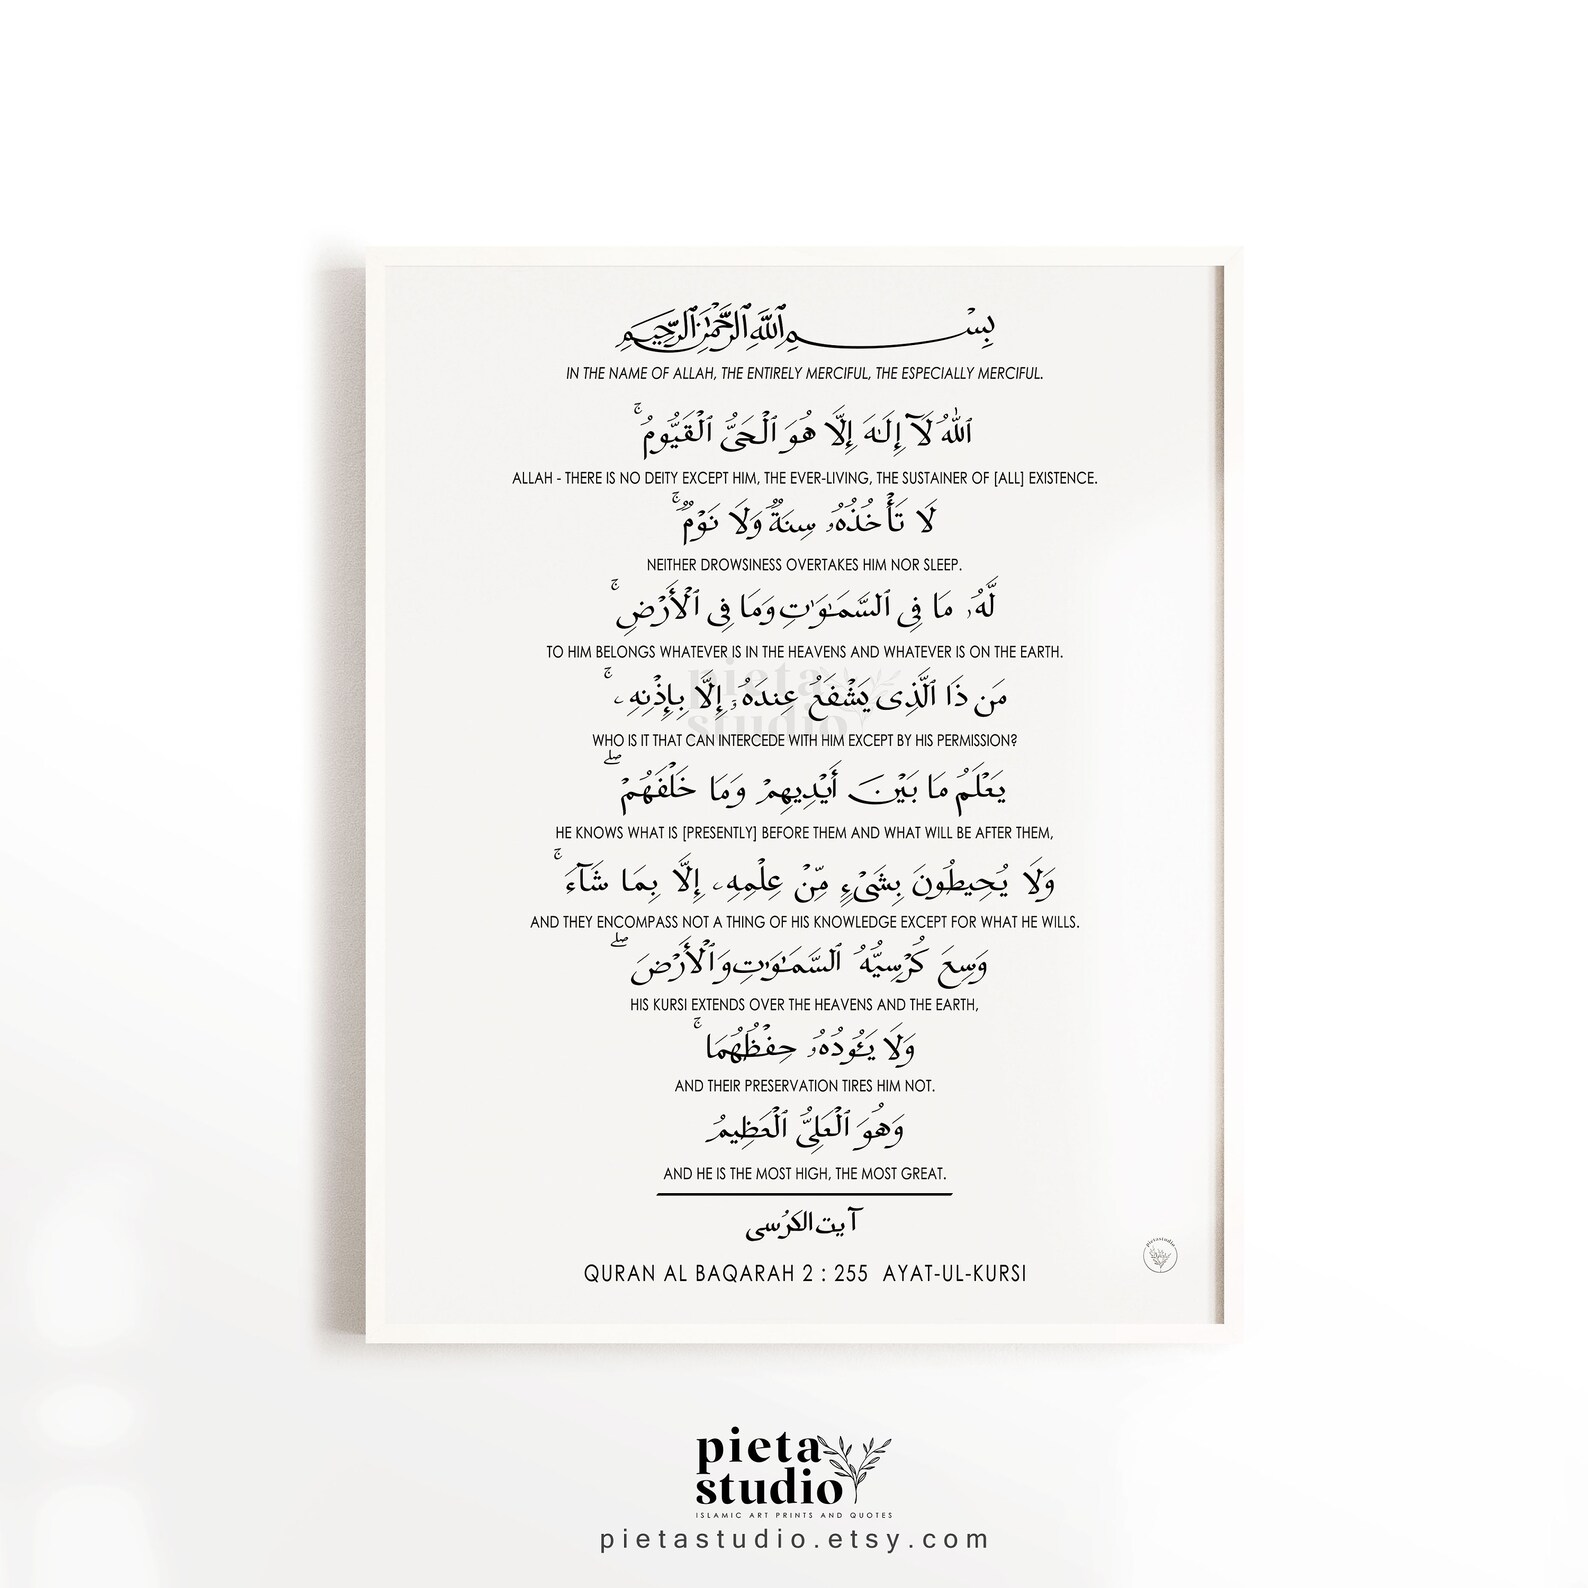 بِسْمِ ٱللَّهِ ٱلرَّحْمَٰنِ ٱلرَّحِيمِ
IN THE NAME OF ALLAH, THE ENTIRELY MERCIFUL, THE ESPECIALLY MERCIFUL.
ٱللَّهُ لَآ إِلَـٰهَ إِلَّا هُوَ ٱلْحَىُّ ٱلْقَيُّومُ ۚ
ALLAH - THERE IS NO DEITY EXCEPT HIM, THE EVER-LIVING, THE SUSTAINER OF [ALL] EXISTENCE.
لَا تَأْخُذُهُۥ سِنَةٌ وَلَا نَوْمٌ ۚ
NEITHER DROWSINESS OVERTAKES HIM NOR SLEEP.
لَّهُۥ مَا فِى ٱلسَّمَـٰوَٰتِ وَمَا فِى ٱلْأَرْضِ ۚ
TO HIM BELONGS WHATEVER IS IN THE HEAVENS AND WHATEVER IS ON THE EARTH.
مَن ذَا ٱلَّذِى يَشْفَعُ عِندَهُۥٓ إِلَّا بِإِذْنِهِۦ ۚ
WHO IS IT THAT CAN INTERCEDE WITH HIM EXCEPT BY HIS PERMISSION?
يَعْلَمُ مَا بَيْنَ أَيْدِيهِمْ وَمَا خَلْفَهُمْ ۖ
HE KNOWS WHAT IS [PRESENTLY] BEFORE THEM AND WHAT WILL BE AFTER THEM,
وَلَا يُحِيطُونَ بِشَىْءٍ مِّنْ عِلْمِهِۦٓ إِلَّا بِمَا شَآءَ ۚ
AND THEY ENCOMPASS NOT A THING OF HIS KNOWLEDGE EXCEPT FOR WHAT HE WILLS.
وَسِعَ كُرْسِيُّهُ ٱلسَّمَـٰوَٰتِ وَٱلْأَرْضَ ۖ
HIS KURSI EXTENDS OVER THE HEAVENS AND THE EARTH,
وَلَا يَـُٔودُهُۥ حِفْظُهُمَا ۚ
AND THEIR PRESERVATION TIRES HIM NOT.
وَهُوَ ٱلْعَلِىُّ ٱلْعَظِيمُ
AND HE IS THE MOST HIGH, THE MOST GREAT.
آيت الكرُسى
QURAN AL BAQARAH 2 : 255 AYAT-UL-KURSI
pietastudio
pieta
studio
pieta
studio
ISLAMIC ART PRINTS AND QUOTES
pietastudio.etsy.com